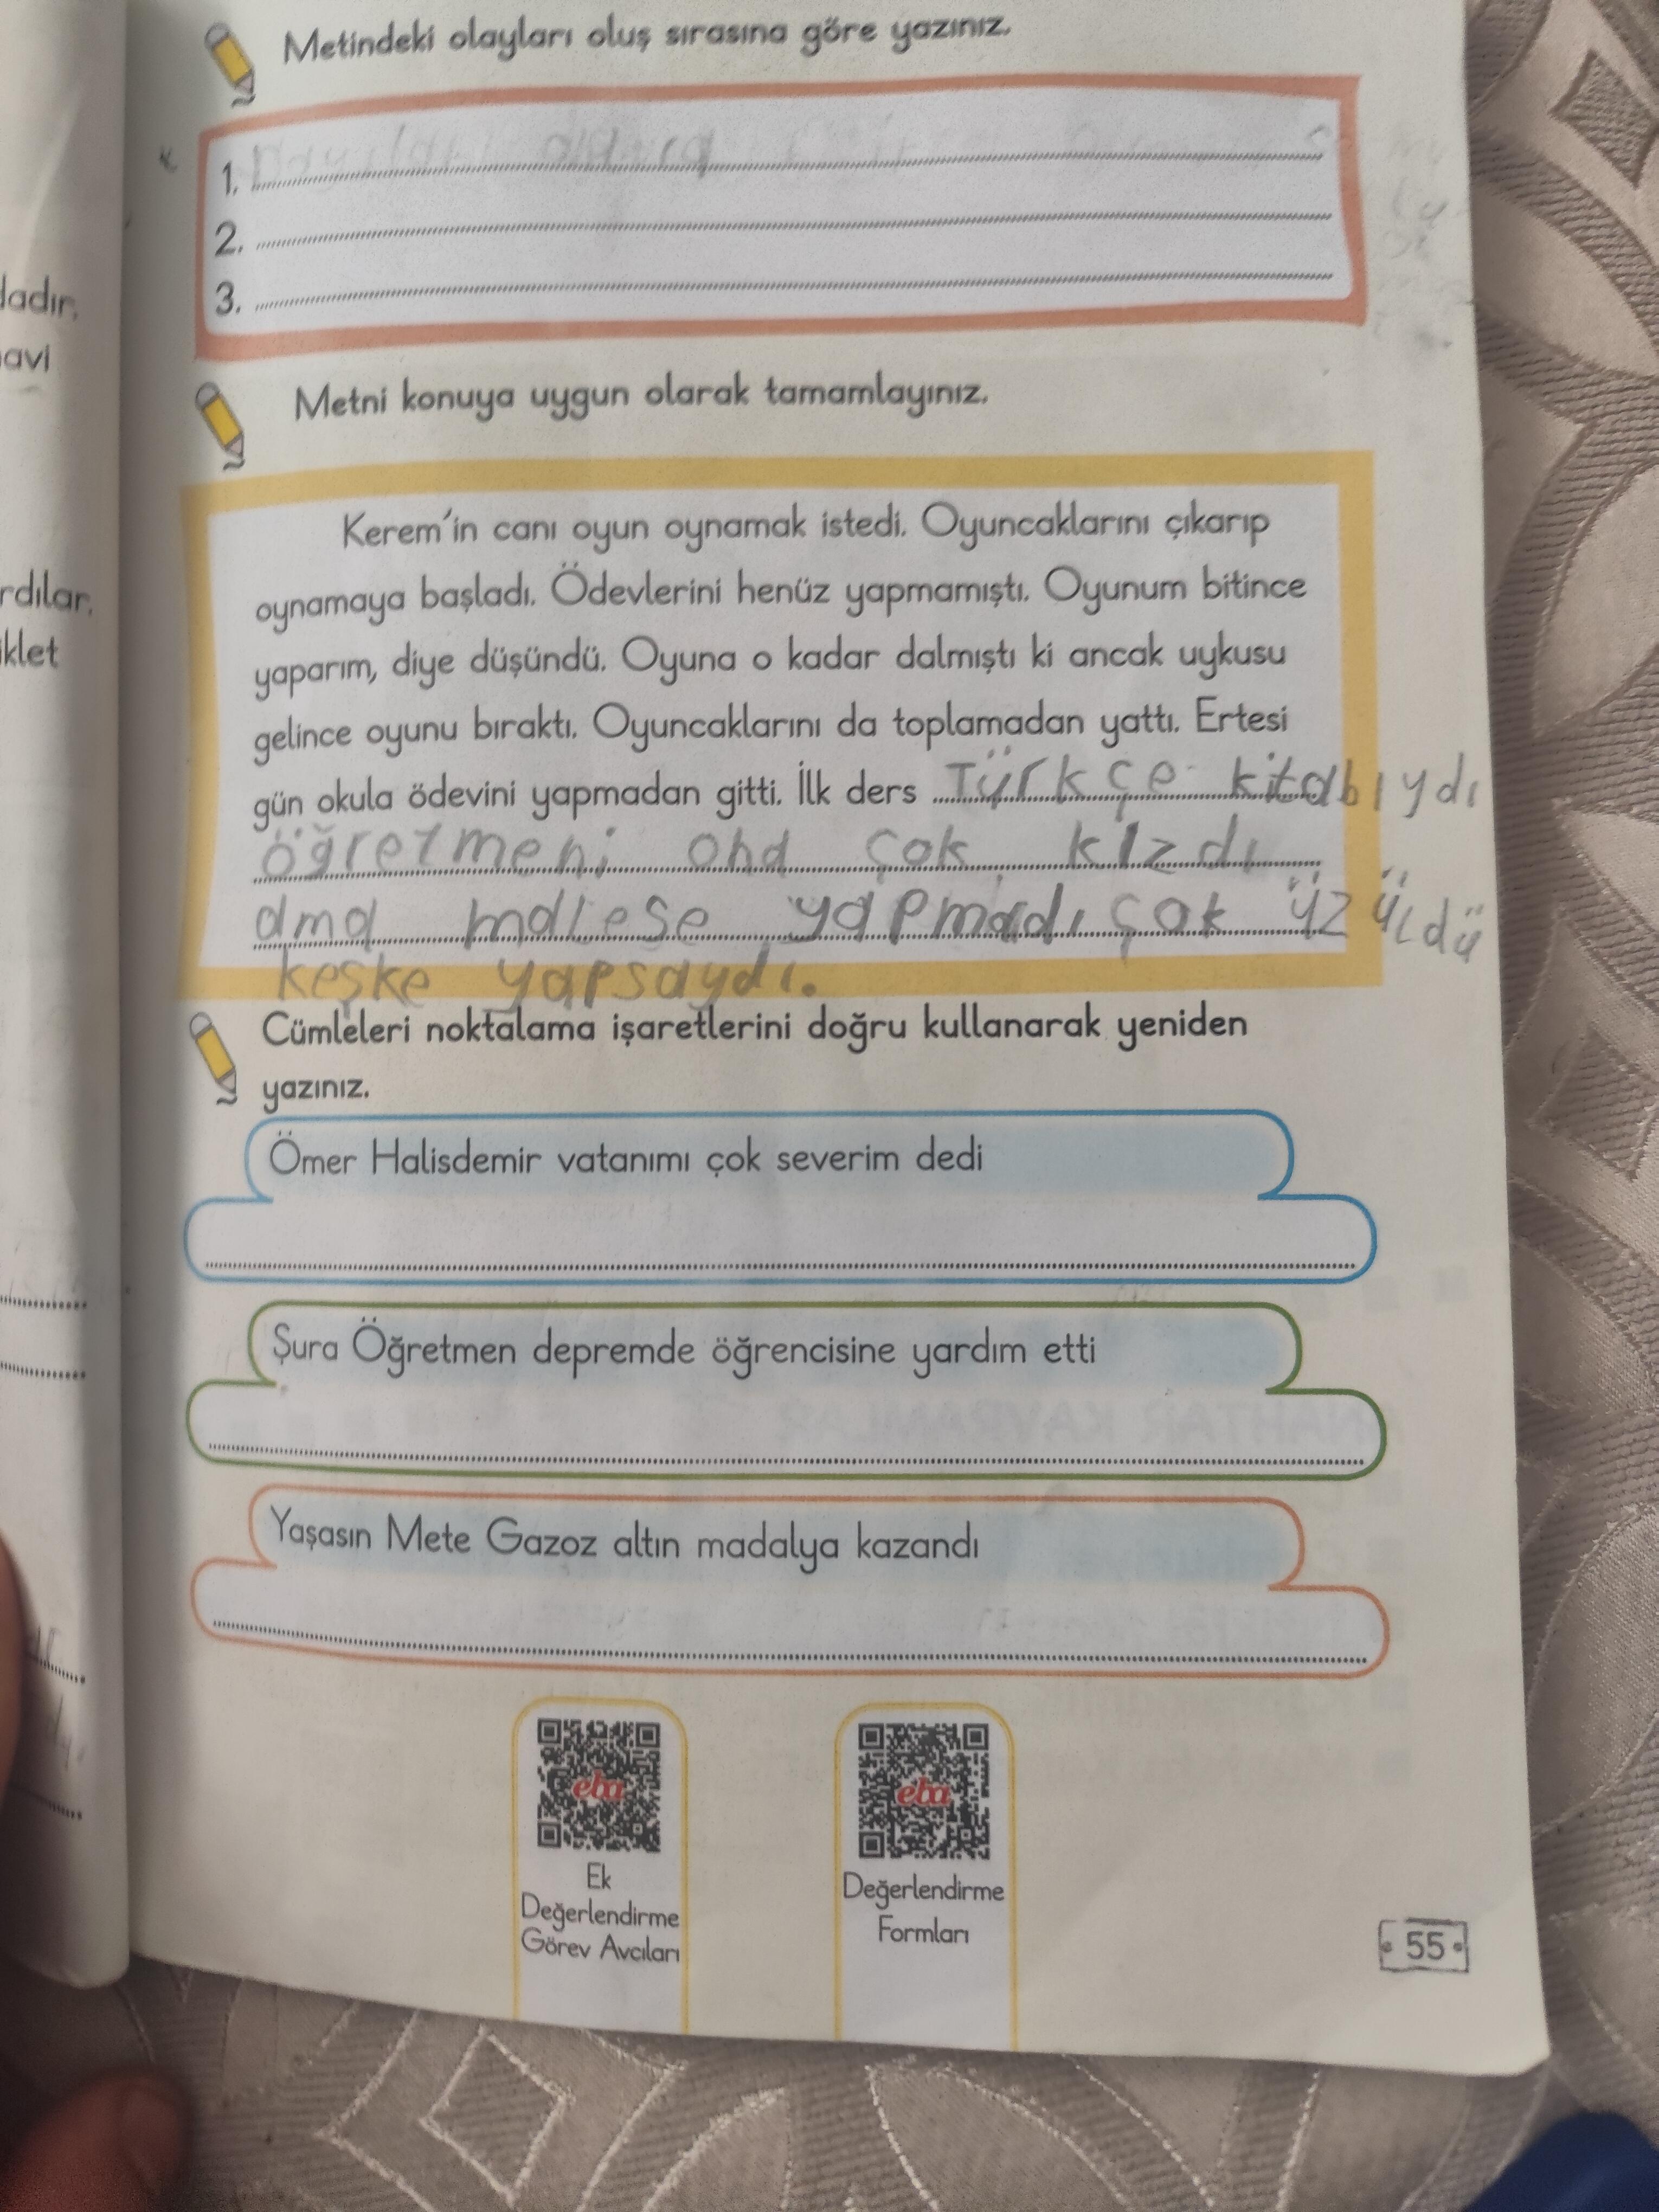 Metindeki olayları oluş sırasına göre yazınız.
1.
2.
3.
Metni konuya uygun olarak tamamlayınız.
Kerem'in canı oyun oynamak istedi. Oyuncaklarını çıkarıp
oynamaya başladı. Ödevlerini henüz yapmamıştı. Oyunum bitince
yaparım, diye düşündü. Oyuna o kadar dalmıştı ki ancak uykusu
gelince oyunu bıraktı. Oyuncaklarını da toplamadan yattı. Ertesi
gün okula ödevini yapmadan gitti. İlk ders Türkçe kitabıydı
öğretmeni ona çok kızdı
ama malese yapmadı çok üzüldü
keşke yapsaydı.
Cümleleri noktalama işaretlerini doğru kullanarak yeniden
yazınız.
Ömer Halisdemir vatanımı çok severim dedi
Şura Öğretmen depremde öğrencisine yardım etti
Yaşasın Mete Gazoz altın madalya kazandı
eba
Ek
Değerlendirme
Görev Avcıları
eba
Değerlendirme
Formları
55
dadır,
avi
rdılar,
iklet